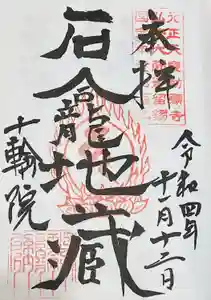 奉拝
令和四年
十一月十二日
石龕地蔵
十輪院